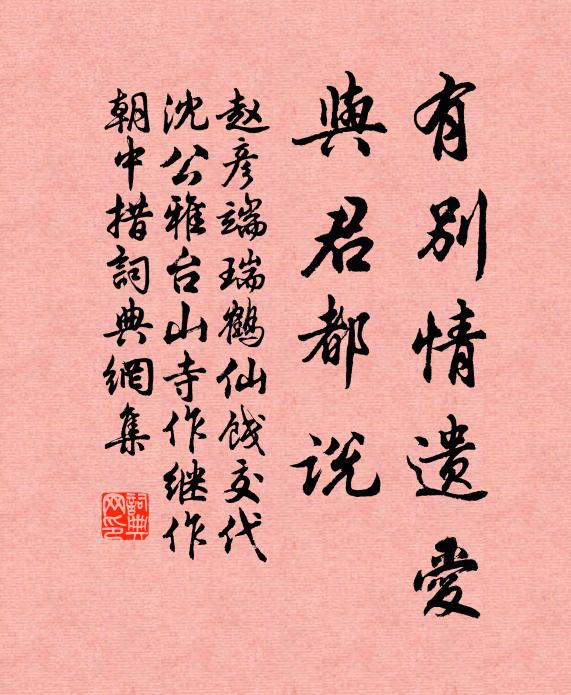 有别情遗爱
與君都说
赵彦端瑞鹤仙饯交代
沈公雅台山寺作继作
朝中措詞典網集
詞典网印